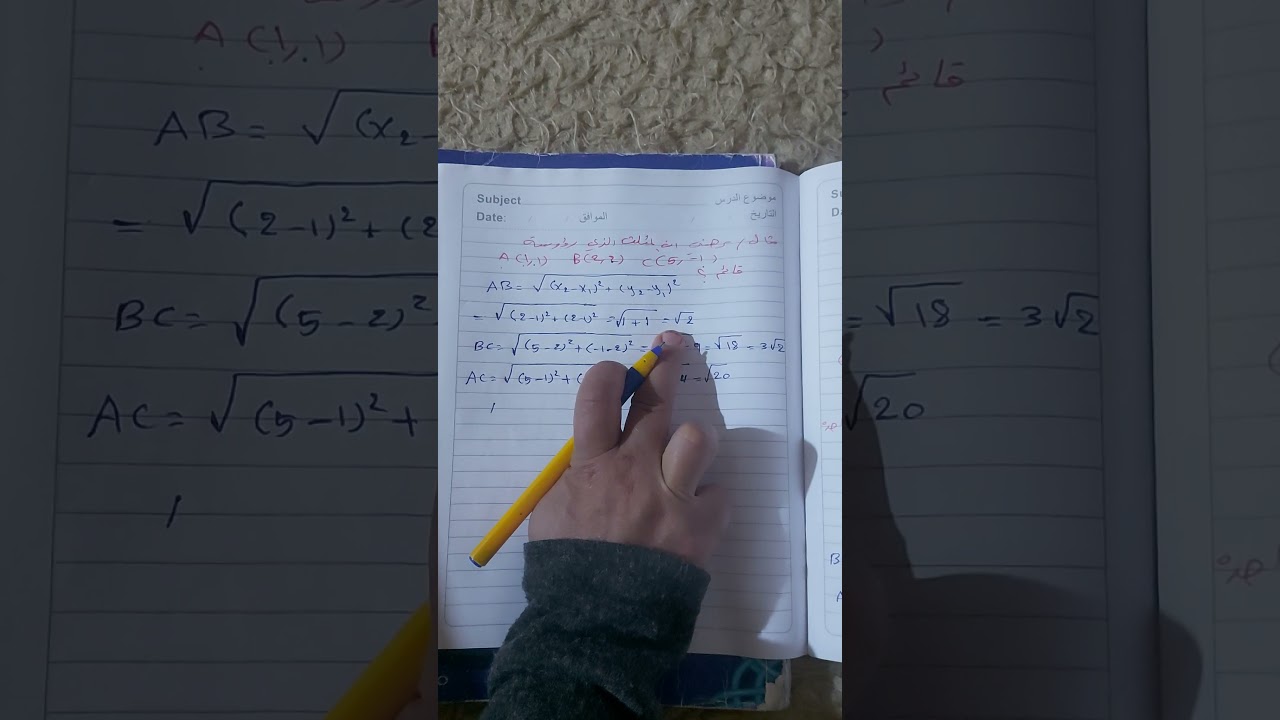 Subject موضوع الدرس
Date: / / الموافق / / التاريخ
مثال / برهن ان المثلث الذي رؤوسه
A(1,1) B(2,2) C(5,-1)
قائم ؟
AB = √(x₂-x₁)²+(y₂-y₁)²
= √(2-1)²+(2-1)² = √1+1 = √2
BC = √(5-2)²+(-1-2)² = = √18 = 3√2
AC = √(5-1)²+( 4 = √20